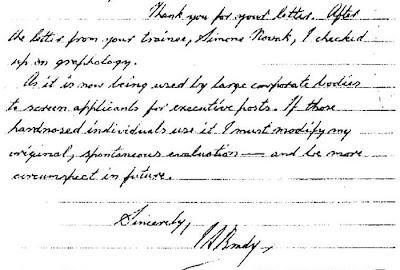 Thank you for your letter. After
the letter from your trainee, Simone Novak, I checked
up on graphology.
As it is now being used by large corporate bodies
to screen applicants for executive posts. If those
hardnosed individuals use it I must modify my
original, spontaneous evaluation — and be more
circumspect in future.
Sincerely,